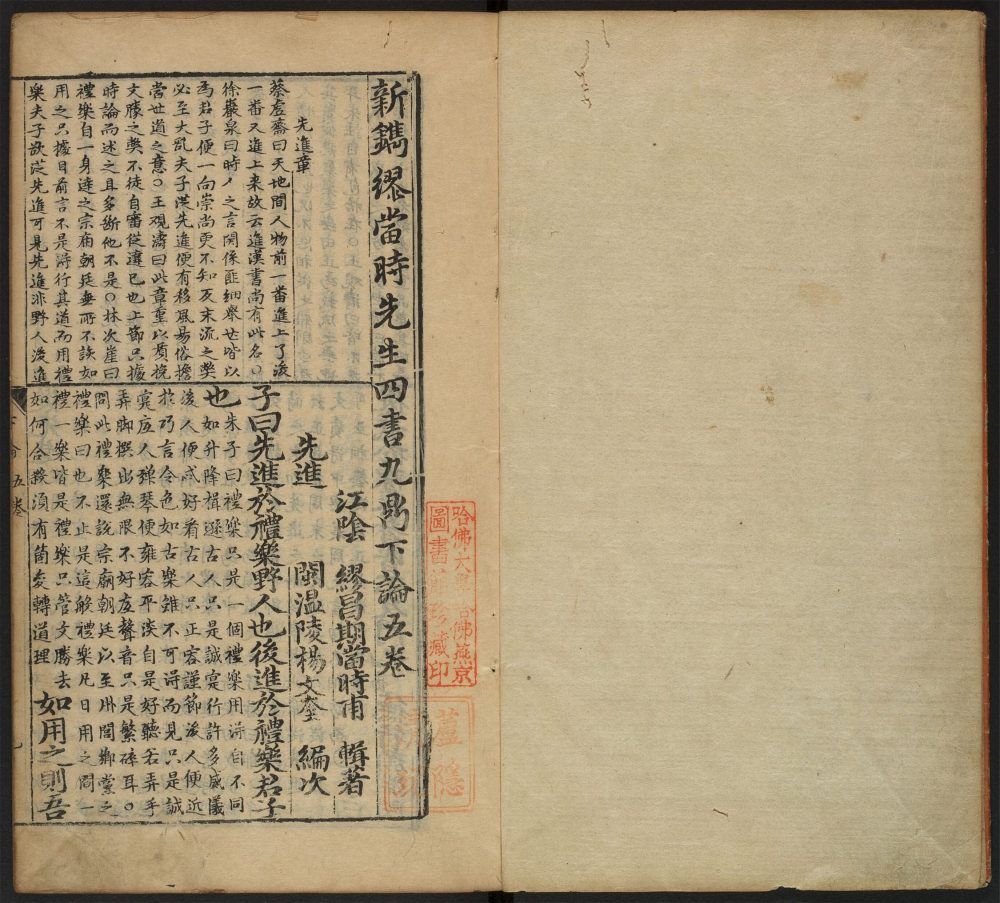 哈佛大學哈佛燕京
圖書館珍藏印
新鐫繆當時先生四書九鼎下論五卷
先進章
蔡虛齋曰天地間人物前一番進上了後
一番又進上來故云進漢書尚有此名○
徐巖泉曰時人之言関係匪細舉世皆以
為君子便一向崇尚更不知及末流之獘
必至大亂夫子從先進便有移風易俗擔
當世道之意○王觀濤曰此章重以質挽
文勝之獘不徒自審從違已也上節只據
時論而述之且多斷他不是○林次崖曰
禮樂自一身達之宗廟朝廷無所不該如
用之只據目前言不是得行其道而用禮
樂夫子欲從先進可見先進非野人後進
江陰 繆昌期當時甫 輯著
閩溫陵楊文奎 編次
先進
子曰先進於禮樂野人也後進於禮樂君子
也
朱子曰禮樂只是一個禮樂用得自不同
如升降揖遜古人只是誠實行許多威儀
後人便咸好看古人只正容謹節後人便近
於巧言令色如古樂雖不可得而見只是誠
實底人彈琴便雍容平淡自是好聽若弄手
弄脚撰出無限不好底聲音只是繁碎耳○
問此禮樂還說宗廟朝廷以至州閭鄉黨之
禮樂曰也不止是這般禮樂凡日用之間一
禮一樂皆是禮樂只管文勝去
如何合殺須有箇變轉道理
如用之則吾
五卷